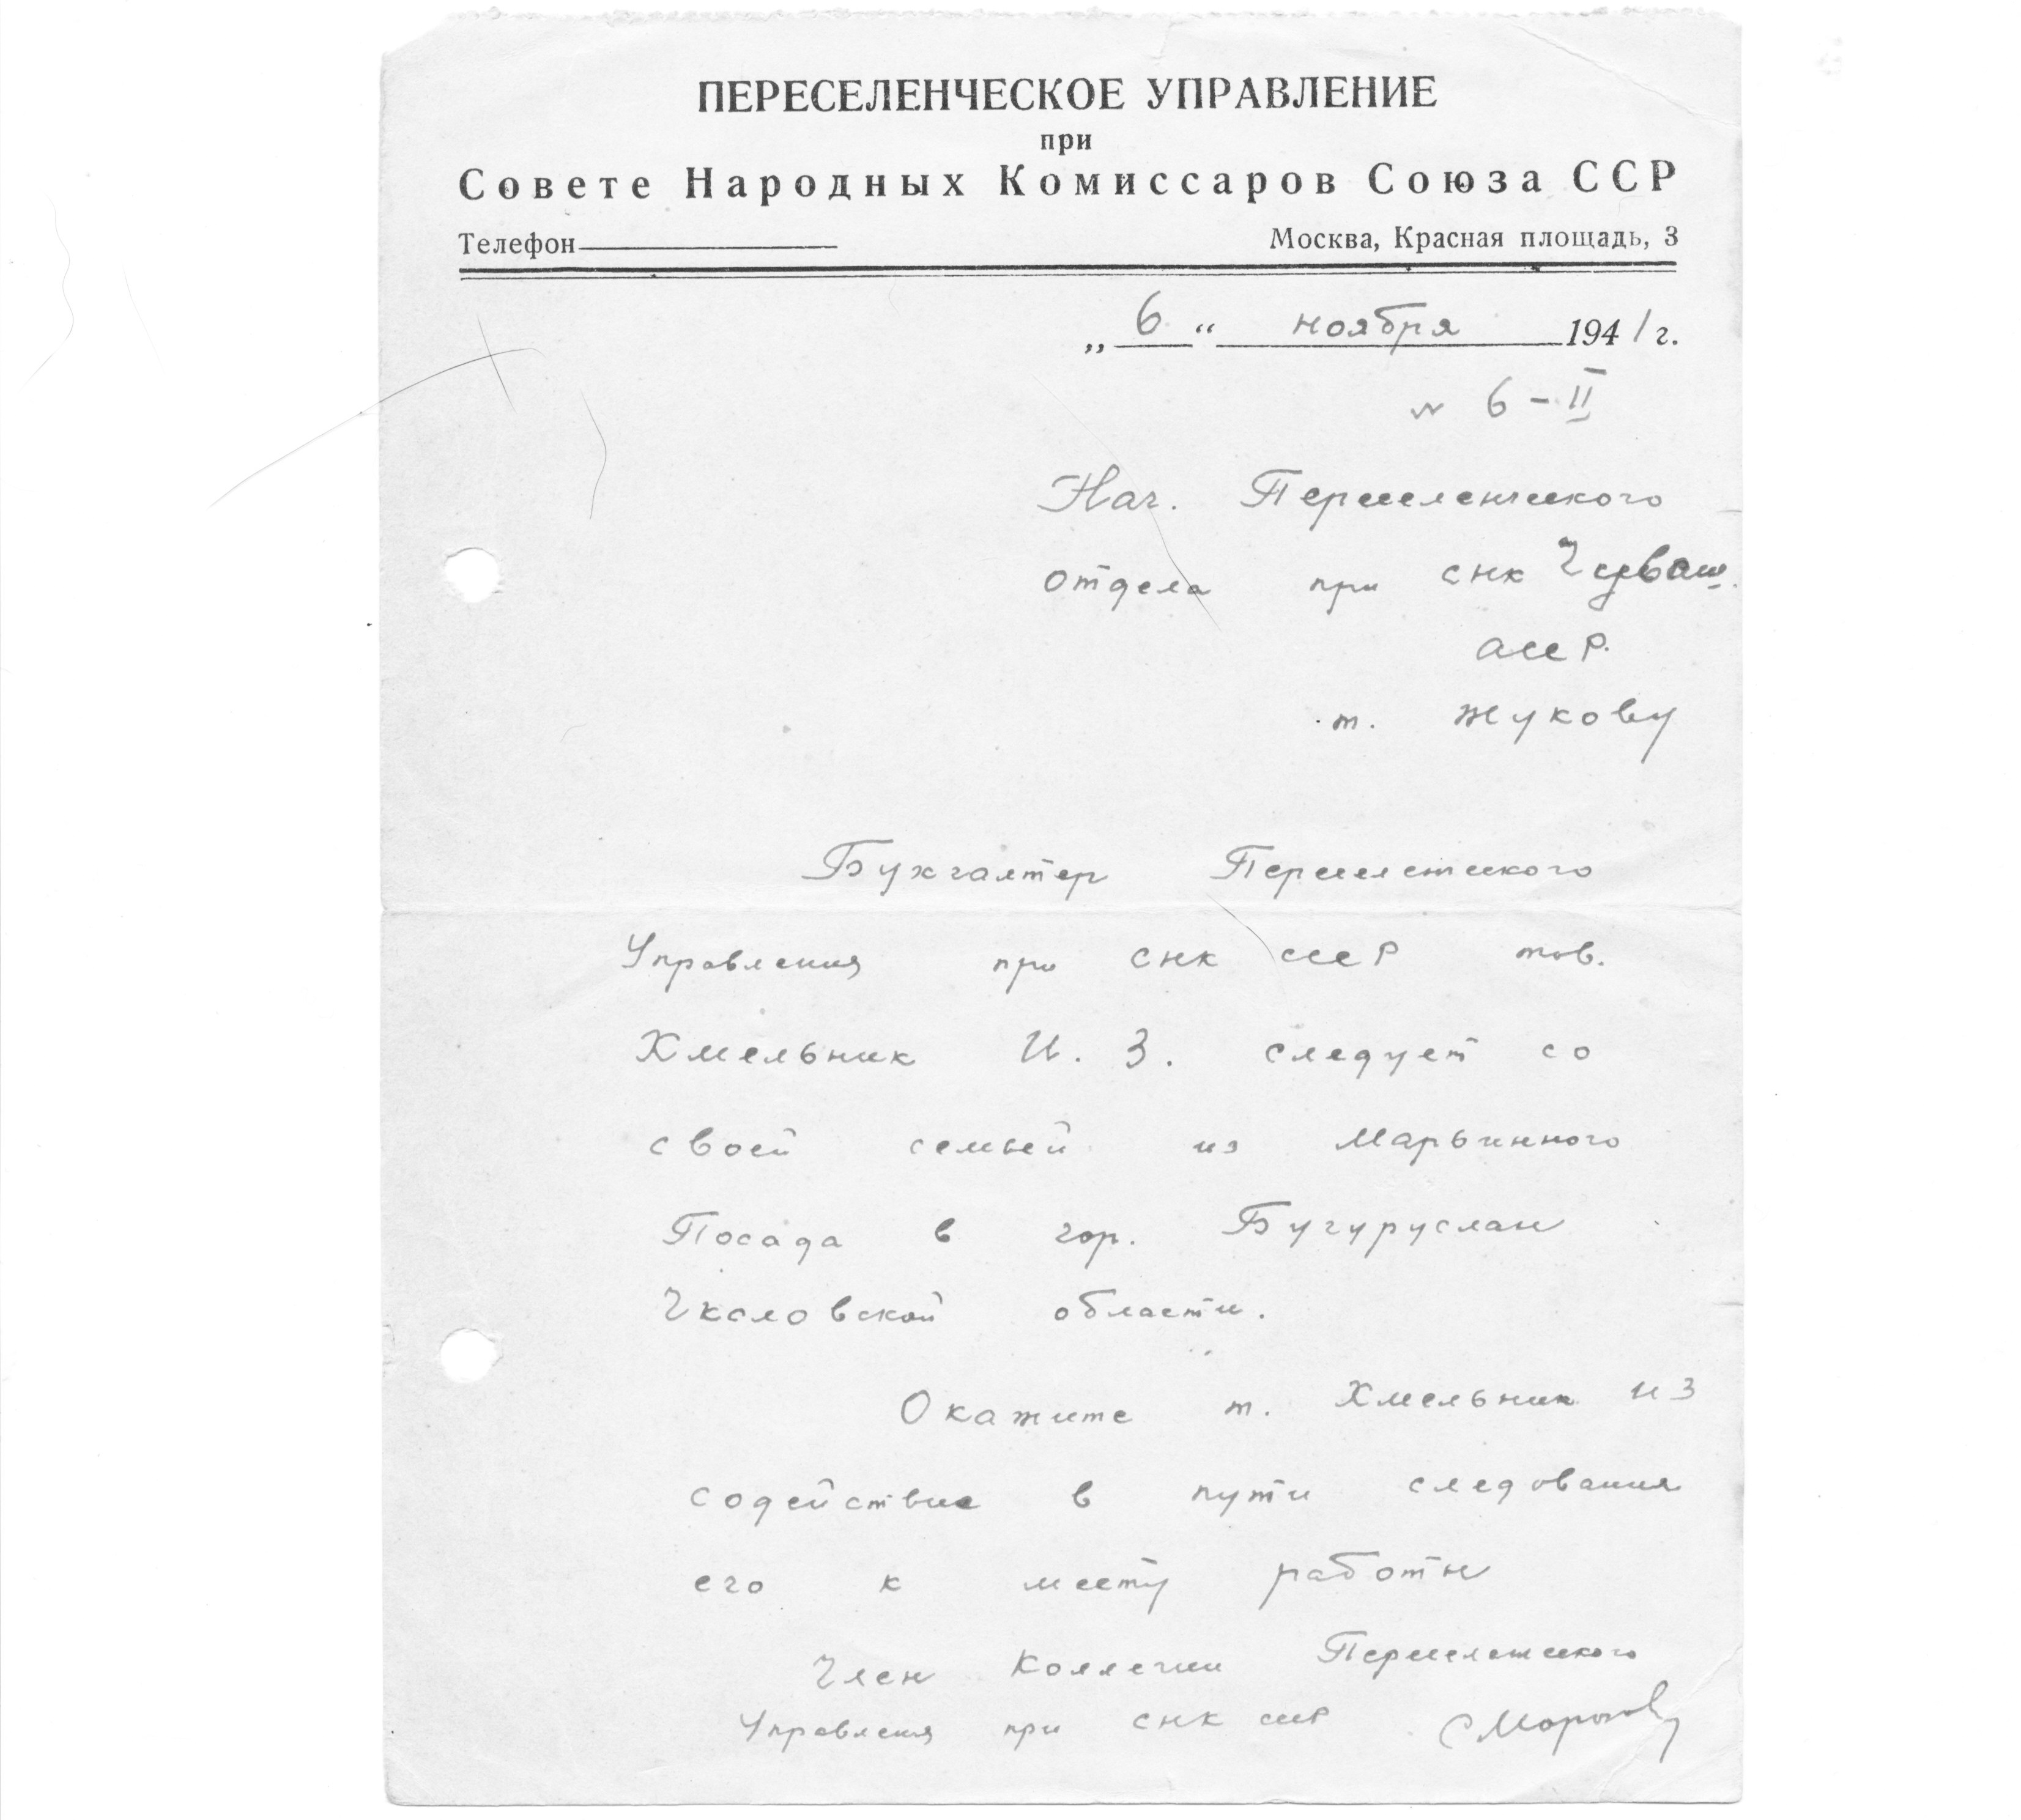 ПЕРЕСЕЛЕНЧЕСКОЕ УПРАВЛЕНИЕ
при
Совете Народных Комиссаров Союза ССР
Телефон Москва, Красная площадь, 3
„ 6 “ ноября 1941 г.
№ 6-II
Нач. Переселенческого
отдела при СНК Чуваш.
АССР.
т. Жукову
Бухгалтер Переселенческого
Управления при СНК СССР тов.
Хмельник И. З. следует со
своей семьей из Марьинного
Посада в гор. Бугуруслан
Чкаловской области.
Окажите т. Хмельник ИЗ
содействие в пути следования
его к месту работы
Член Коллегии Переселенческого
Управления при СНК СССР СМорозов